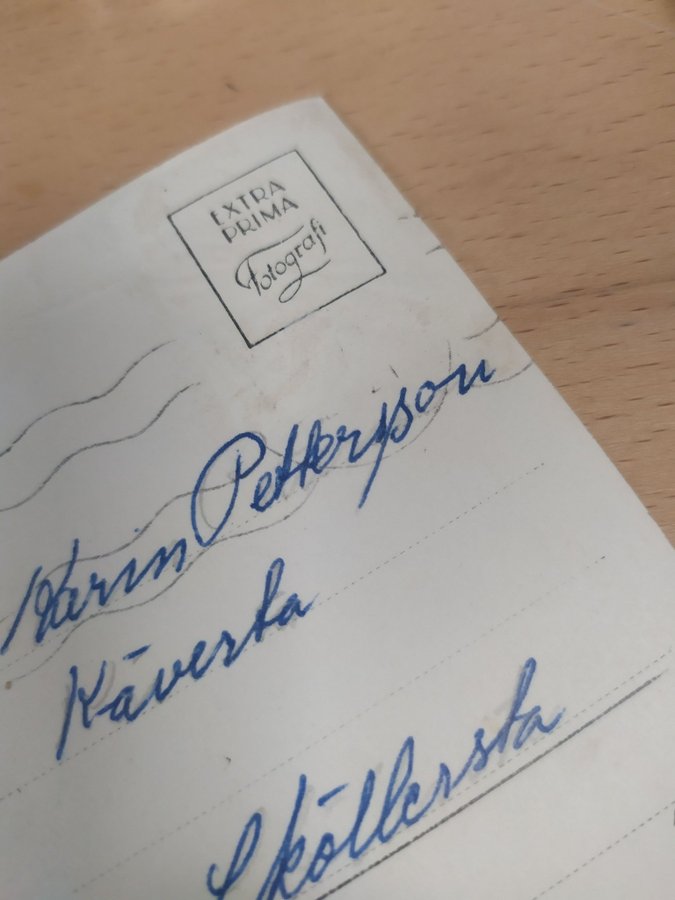 EXTRA
PRIMA
Fotografi
Karin Petterson
Kāversta
Sköllersta